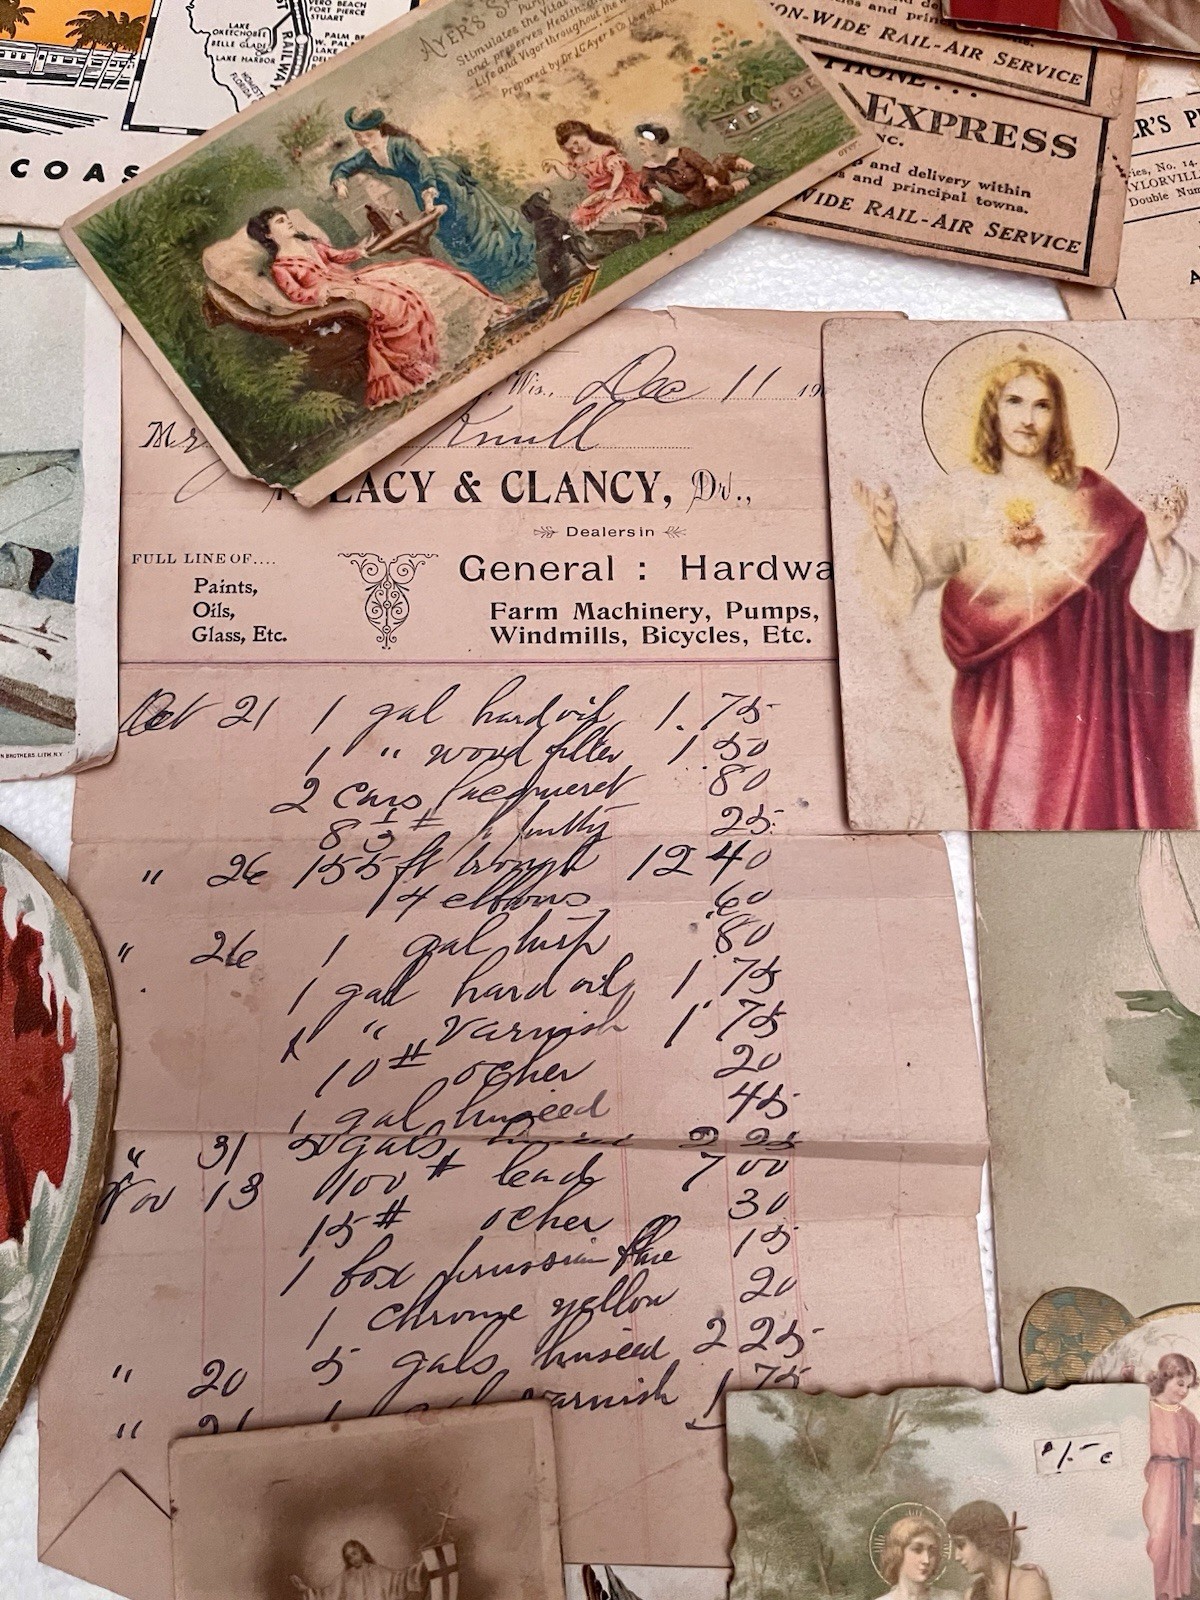 VERO BEACH
FORT PIERCE
STUART
LAKE
OKEECHOBEE
BELLE GLADE
LAKE HARBOR
RAILWAY
PALM BE
W. PAL
LAKE
HOMEST
FLORIDA
COAS
AYER'S
Stimulates the Vital
and preserves Health
Life and Vigor throughout the
Prepared by Dr J.C. Ayer & Co. Lowell, Mass
over.
ON-WIDE RAIL-AIR SERVICE
PHONE...
EXPRESS
NC.
and delivery within
s and principal towns.
WIDE RAIL-AIR SERVICE
ER'S P
ries, No. 14.
AYLORVIL
Double Num
Wis., Dec 11 19
Mr Knull
LACY & CLANCY, Dr.,
Dealers in
FULL LINE OF....
Paints,
Oils,
Glass, Etc.
General : Hardwa
Farm Machinery, Pumps,
Windmills, Bicycles, Etc.
Oct 21 1 gal hard oil 1.75
1 " wood filler 1 50
2 cans 80
8 1/3 # putty 25
" 26 155 ft trough 12 40
14 elbows 60
" 26 1 gal turp 80
1 gal hard oil 1 75
1 " varnish 1 75
10 # ocher 20
1 gal linseed 45
" 31 5 gals linseed 2 25
Nov 13 100 # lead 7 00
15 # ocher 30
1 box prussian blue 15
1 chrome yellow 20
" 20 5 gals linseed 2 25
" 21 1 varnish 1 75
N BROTHERS. LITH. N.Y.